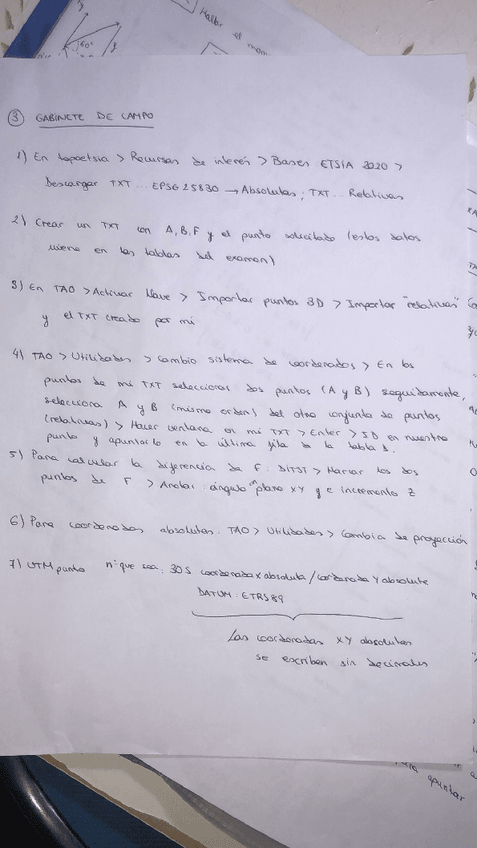 Hallar el mom
60°
③ GABINETE DE CAMPO
1) En topoetsia > Recursos de interés > Bases ETSIA 2020 >
Descargar TXT ... EPSG 25830 → Absolutas; TXT .. Relativas
2) Crear un TXT con A, B, F y el punto solicitado (estos datos
viene en las tablas del examen)
3) En TAO > Activar llave > Importar puntos 3D > Importar "relativas"
y el TXT creado por mi
4) TAO > Utilidades > Cambio sistema de coordenadas > En los
puntos de mi TXT seleccionar dos puntos (A y B) seguidamente,
selecciona A y B (mismo orden) del otro conjunto de puntos
(relativas) > Hacer ventana en mi TXT > Enter > ID en nuestro
punto y apuntarlo en la última fila de la tabla 1.
5) Para calcular la diferencia de F: DITSI > Marcar los dos
puntos de F > Anotar: ángulo en plano XY y e incremento Z
6) Para coordenadas absolutas: TAO > Utilidades > Cambia de proyección
7) UTM punto nº que sea: 30S coordenada x absoluta / coordenada Y absoluta
DATUM: ETRS89
Las coordenadas XY absolutas
se escriben sin decimales
apuntar